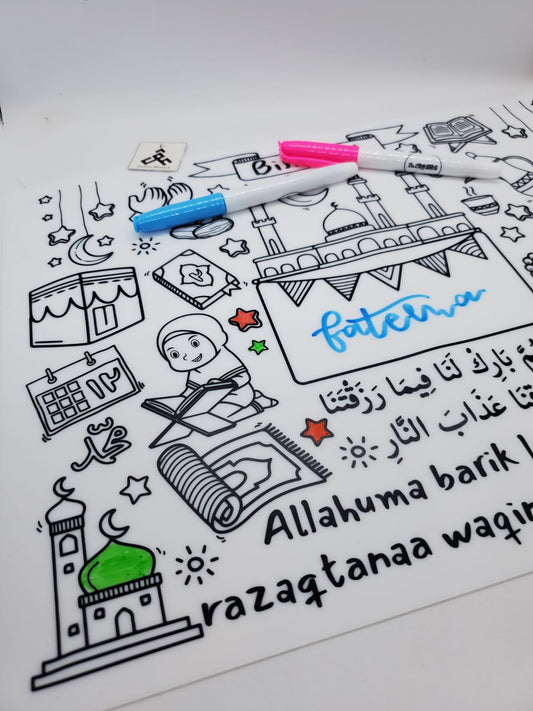 Bi
fatema
بَارِكْ لَنَا فِيمَا رَزَقْتَنَا
عَذَابَ النَّارِ
١٢
محمد
Allahuma barik
razaqtanaa waqin